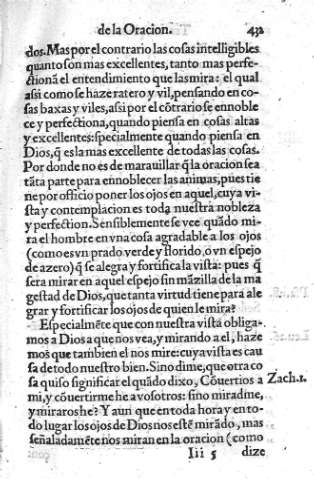 de la Oracion. 432
dos. Mas por el contrario las cosas intelligibles
quanto son mas excellentes, tanto mas perfe-
ctionã el entendimiento que las mira: el qual
assi como se haze ratero y vil, pensando en co-
sas baxas y viles, assi por el cõtrario se ennoble
ce y perfectiona, quando piensa en cosas altas
y excellentes: specialmente quando piensa en
Dios, q̃ es la mas excellente de todas las cosas.
Por donde no es de marauillar q̃ la oracion sea
tãta parte para ennoblecer las animas, pues tie
ne por officio poner los ojos en aquel, cuya vi-
sta y contemplacion es toda nuestra nobleza
y perfection. Sensiblemente se vee quãdo mi-
ra el hombre en vna cosa agradable a los ojos
(como es vn prado verde y florido, o vn espejo
de azero) q̃ se alegra y fortifica la vista: pues q̃
sera mirar en aquel espejo sin mãzilla de la ma
gestad de Dios, que tanta virtud tiene para ale
grar y fortificar los ojos de quien le mira?
Especialmẽte que con nuestra vista obliga-
mos a Dios a que nos vea, y mirando a el, haze
mos que tambien el nos mire: cuya vista es cau
sa de todo nuestro bien. Sino dime, que otra co
sa quiso significar el quãdo dixo, Cõuertios a Zach.1.
mi, y cõuertirme he a vosotros: sino miradme,
y miraros he? Y aun que en toda hora y en to-
do lugar los ojos de Dios nos estẽ mirãdo, mas
señaladamẽte nos miran en la oracion (como
Iii 5 dize